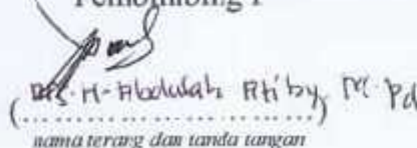 Pembimbing I
(Drs. H. Abdullah Atiby, M.Pd)
nama terang dan tanda tangan